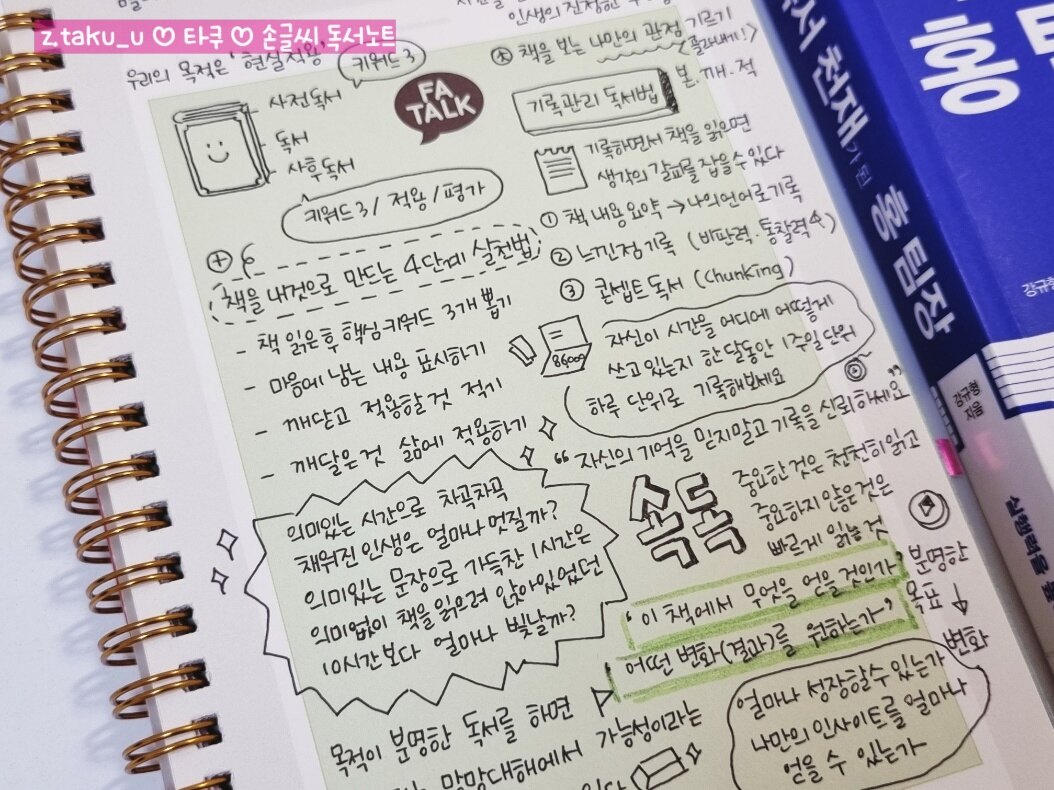 z.taku_u ♡ 타쿠 ♡ 손글씨 독서노트
우리의 목적은 '현실적용'
키워드 3
사전독서
독서
사후독서
키워드 3 / 적용 / 평가
FA
TALK
책을 내것으로 만드는 4단계 실천법
- 책 읽은후 핵심 키워드 3개 뽑기
- 마음에 남는 내용 표시하기
- 깨닫고 적용할것 적기
- 깨달은것 삶에 적용하기
의미있는 시간으로 차곡차곡
채워진 인생은 얼마나 멋질까?
의미있는 문장으로 가득찬 1시간은
의미없이 책을 읽으려 앉아있었던
10시간보다 얼마나 빛날까?
목적이 분명한 독서를 하면
망망대해에서 가능성이라는
인생의 진정한
책을 보는 나만의 관점 기르기
(골라내기!)
기록관리 독서법
본.깨.적
기록하면서 책을 읽으면
생각의 갈피를 잡을수있다
① 책 내용 요약 → 나의언어로기록
② 느낀점 기록 (비판력.통찰력↑)
③ 콘셉트 독서 (Chunking)
86400
자신이 시간을 어디에 어떻게
쓰고있는지 한달동안 1주일 단위
하루 단위로 기록해보세요
"자신의 기억을 믿지말고 기록을 신뢰하세요"
속독
중요한것은 천천히 읽고
중요하지 않은것은
빠르게 읽는 것
'이 책에서 무엇을 얻을 것인가
어떤 변화(결과)를 원하는가'
분명한
목표
↓
변화
얼마나 성장할수있는가
나만의 인사이트를 얼마나
얻을 수 있는가
천재가 된 홍 팀장
강규형
지음
홍
강규형
실행력을